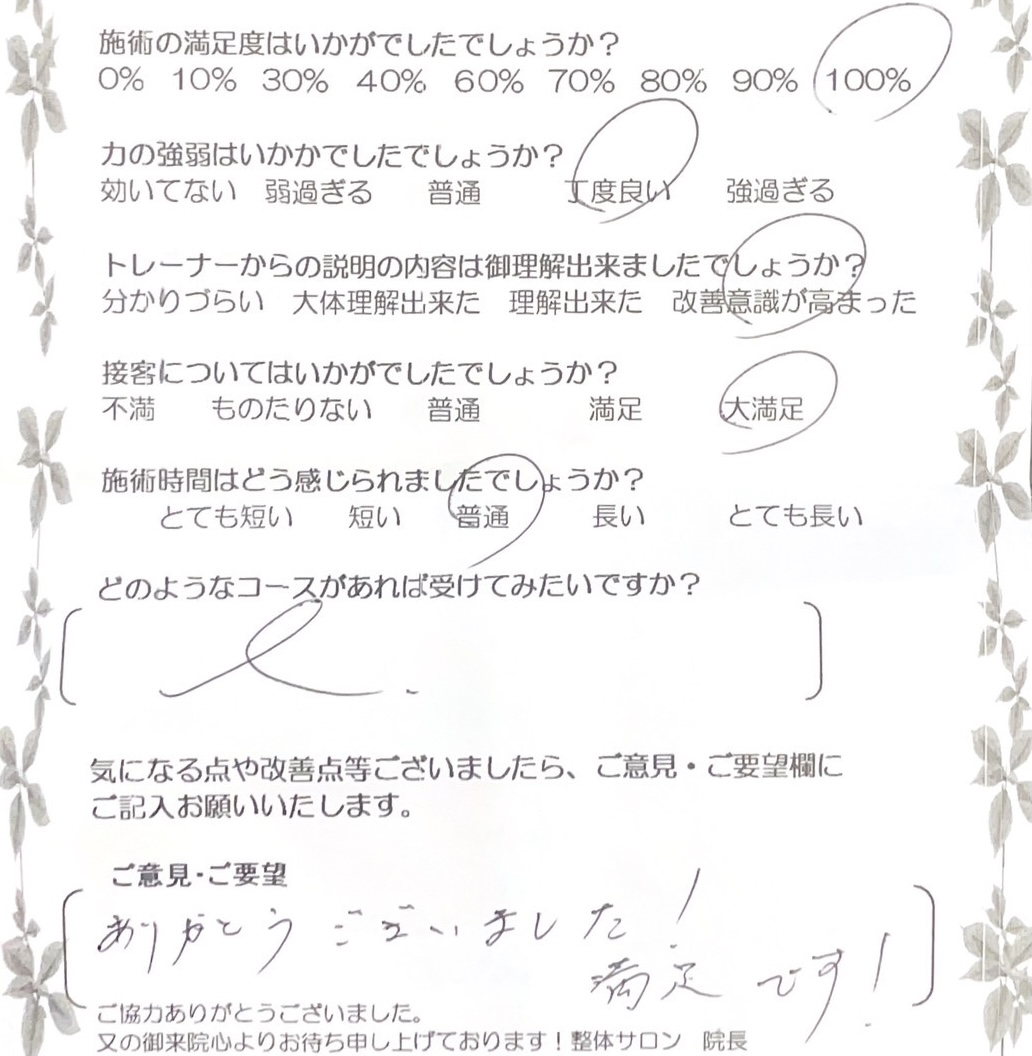 施術の満足度はいかがでしたでしょうか？
0% 10% 30% 40% 60% 70% 80% 90% 100%
力の強弱はいかかでしたでしょうか？
効いてない 弱過ぎる 普通 丁度良い 強過ぎる
トレーナーからの説明の内容は御理解出来ましたでしょうか？
分かりづらい 大体理解出来た 理解出来た 改善意識が高まった
接客についてはいかがでしたでしょうか？
不満 ものたりない 普通 満足 大満足
施術時間はどう感じられましたでしょうか？
とても短い 短い 普通 長い とても長い
どのようなコースがあれば受けてみたいですか？
気になる点や改善点等ございましたら、ご意見・ご要望欄に
ご記入お願いいたします。
ご意見・ご要望
ありがとうございました！
満足です！
ご協力ありがとうございました。
又の御来院心よりお待ち申し上げております！整体サロン 院長